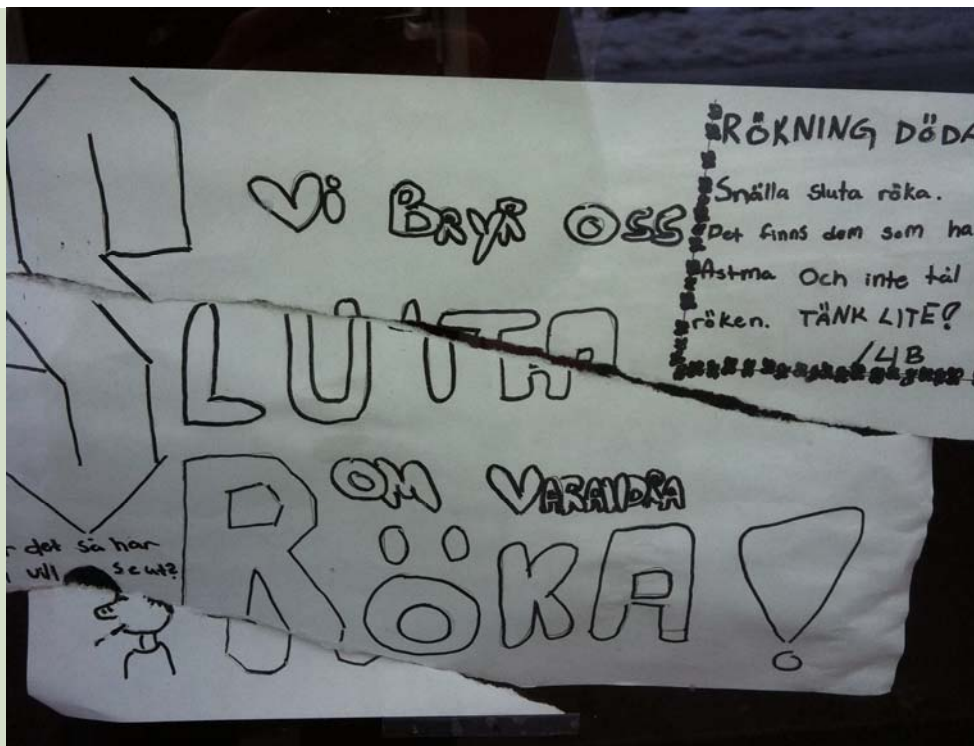 Vi BRYR OSS
SLUTA
OM VARANDRA
RÖKA!
RÖKNING DÖDA
Snälla sluta röka.
Det finns dem som ha
Astma Och inte tål
röken. TÄNK LITE!
/4B
det så här
vill